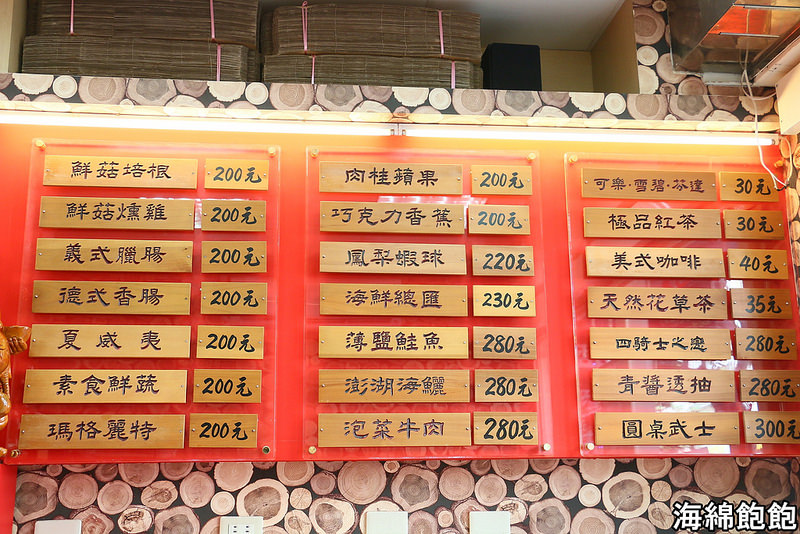 鮮菇培根 200元
鮮菇燻雞 200元
義式臘腸 200元
德式香腸 200元
夏威夷 200元
素食鮮蔬 200元
瑪格麗特 200元
肉桂蘋果 200元
巧克力香蕉 200元
鳳梨蝦球 220元
海鮮總匯 230元
薄鹽鮭魚 280元
澎湖海鱺 280元
泡菜牛肉 280元
可樂·雪碧·芬達 30元
極品紅茶 30元
美式咖啡 40元
天然花草茶 35元
四騎士之戀 280元
青醬透抽 280元
圓桌武士 300元
海綿飽飽
海綿飽飽